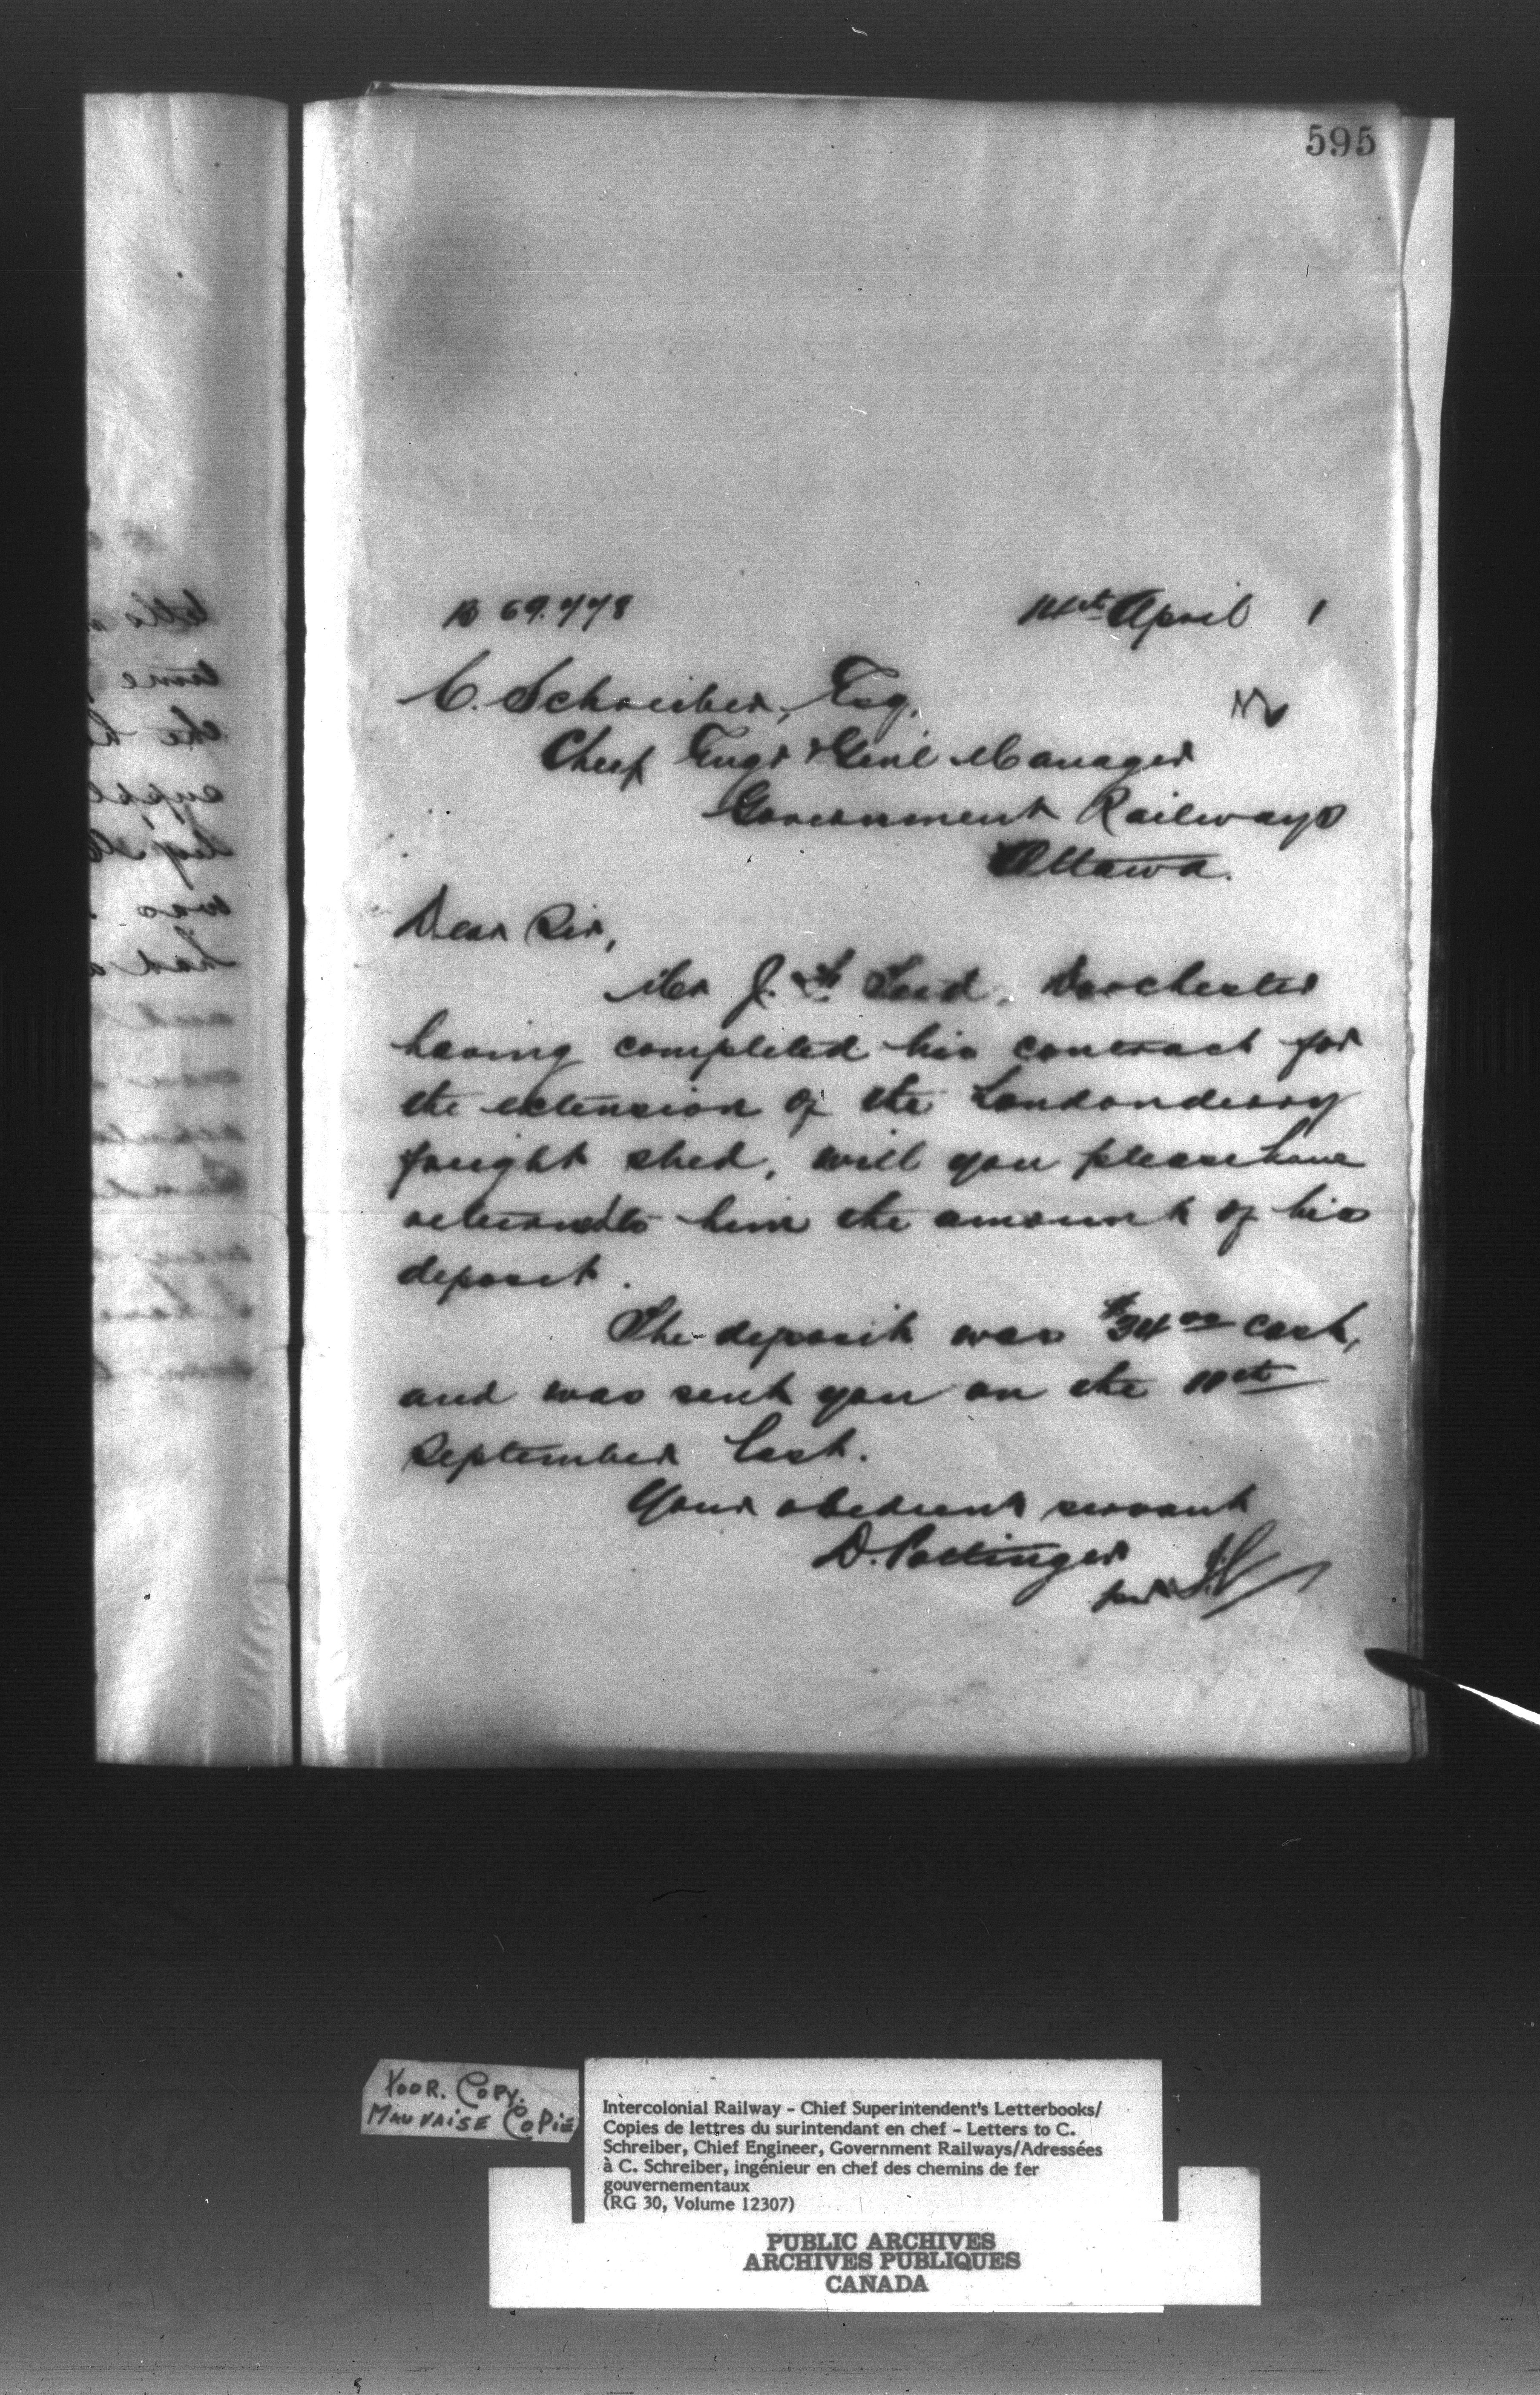 595
B 69.778
14th April 1
C. Schreiber, Esq.
Chief Engr & Genl Manager
Government Railways
Ottawa.
Dear Sir,
Mr J. Dorchester
having completed his contract for
the extension of the Londonderry
freight shed, will you please have
returned to him the amount of his
deposit.
The deposit was $34 00 cash,
and was sent you on the
September last.
Your obedient servant
D. Pottinger
per
POOR. COPY.
MAUVAISE COPIE
Intercolonial Railway - Chief Superintendent's Letterbooks/
Copies de lettres du surintendant en chef - Letters to C.
Schreiber, Chief Engineer, Government Railways/Adressées
à C. Schreiber, ingénieur en chef des chemins de fer
gouvernementaux
(RG 30, Volume 12307)
PUBLIC ARCHIVES
ARCHIVES PUBLIQUES
CANADA